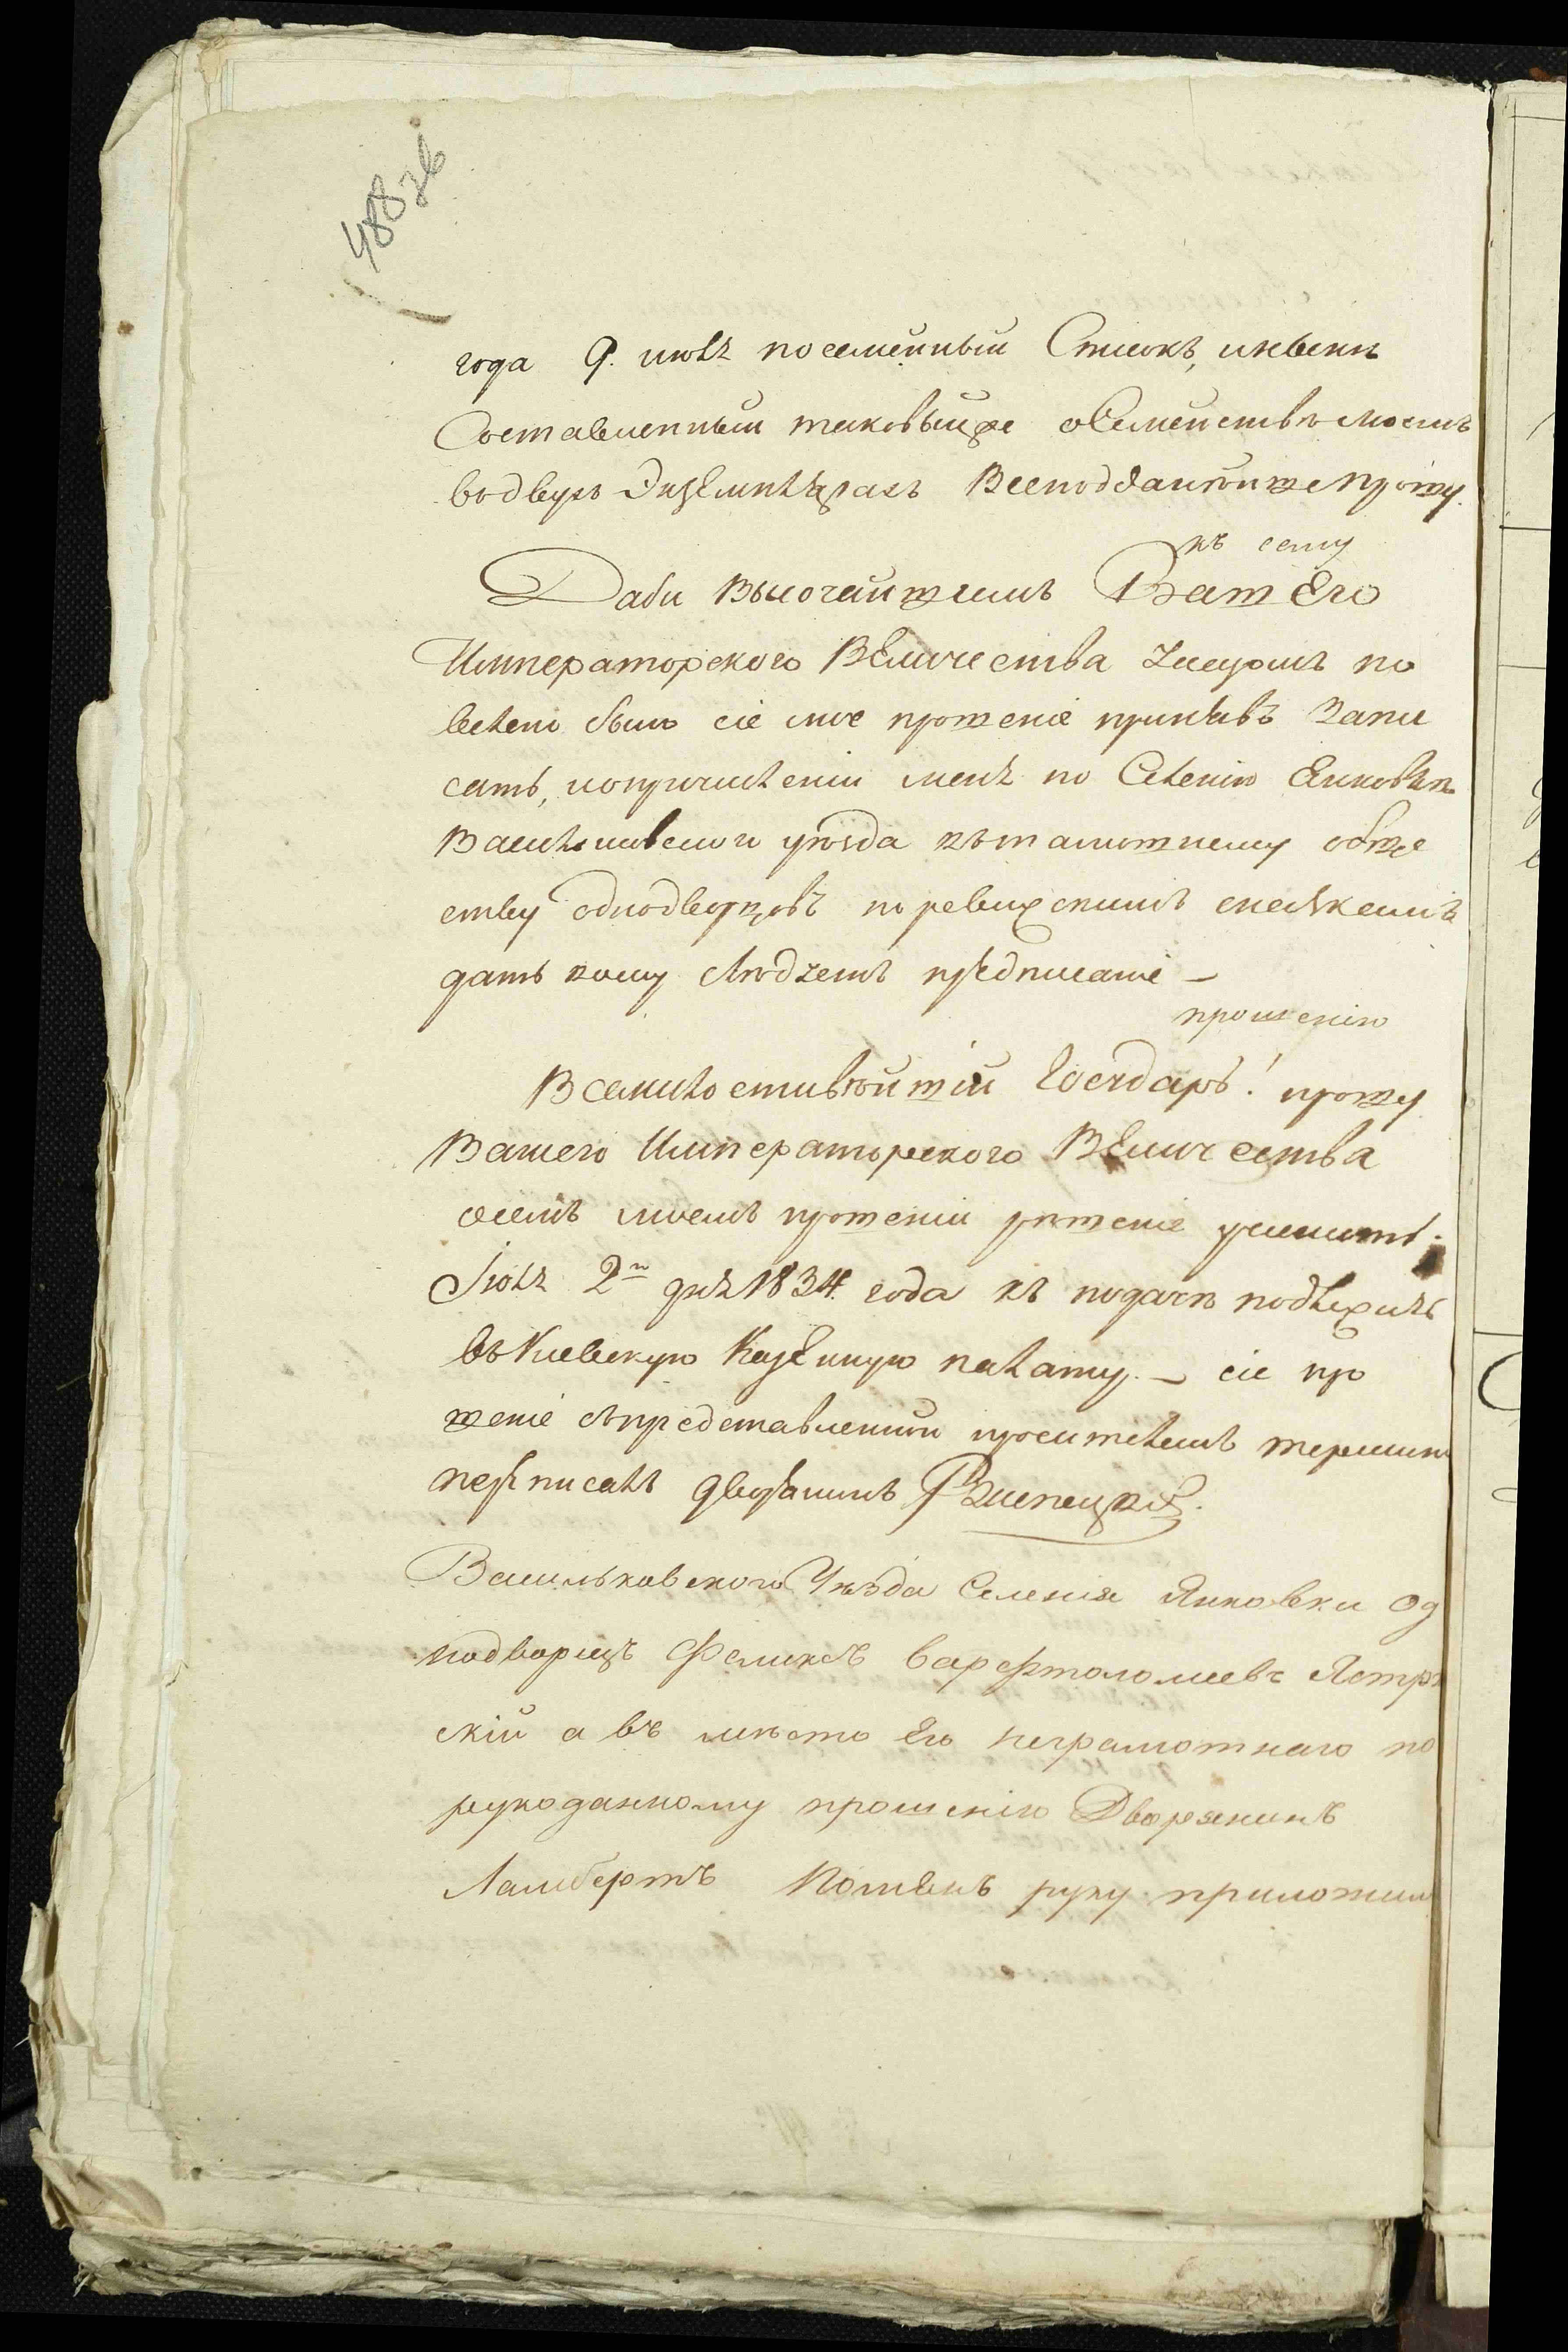 488 зв
года 9. июля посемейный Списокъ, и нынѣ
Составленный таковыйже о Семействѣ моемъ
въ двухъ Экземплярахъ Всеподданнѣйше прошу.
къ сему
Даби Высочайшимъ Вашего
Императорского Величества Указомъ по
велено было сіе мое прошеніе принявъ Запи
сать, и о причисленіи меня по Селению Янковкѣ
Васильковского уѣзда къ тамошнему обще
ству однодворцовъ по ревизскимъ сказкамъ
дать кому слюдуетъ предписаніе —
прошенію
Всемилостивѣйшій Государь! прошу
Вашего Императорского Величества
о семъ моемъ прошеніи рѣшеніе учинить.
Іюля 2го дня 1834 года къ подачѣ подлежитъ
въ Киевскую Казенную палату. — сіе про
шеніе съ представленной просителемъ
переписалъ дворянинъ
Васильковского Уѣзда Селения Янковки Од
нодворецъ Феликсъ Варфтоломеевъ Ястр
скій а въ мѣсто Его неграмотнаго по
рукоданному прошенію Дворянинъ
Ламбертъ руку приложил